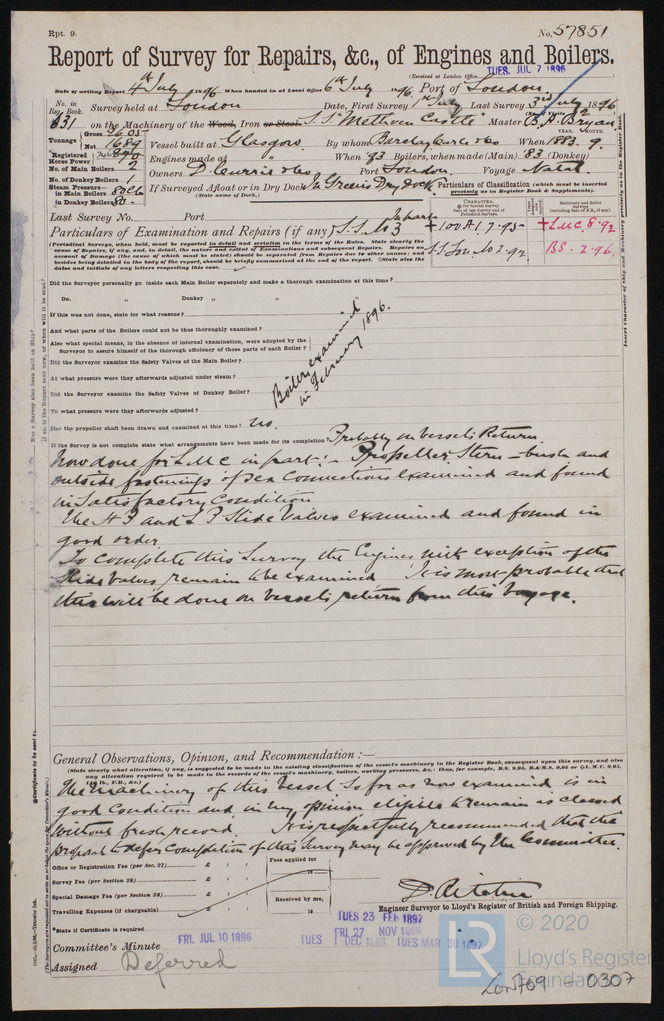 Rpt. 9.
No. 57851
Report of Survey for Repairs, &c., of Engines and Boilers.
(Received at London Office TUES. JUL 7 1896
Date of writing Report 4th July 1896 When handed in at Local Office 6th July 1896 Port of London
No. in Reg. Book. Survey held at London Date, First Survey 1st July Last Survey 3rd July 1896
631 on the Machinery of the Wood, Iron or Steel S.S. "Methven Castle" Master B. A. Bryan
Tonnage Gross
Net 1689
Vessel built at Glasgow By whom Barclay Curle & Co When 1883. 9.
Registered Horse Power
Engines made at " When '83 Boilers, when made (Main) '83 (Donkey)
No. of Main Boilers 2
Owners D. Currie & Co Port London Voyage Natal
No. of Donkey Boilers 1
Steam Pressure in Main Boilers 80 lb
in Donkey Boilers 80
If Surveyed Afloat or in Dry Dock In Green's Dry Dock
(State name of Dock.)
Particulars of Classification (which must be inserted precisely as in Register Book & Supplements).
Last Survey No. Port
Particulars of Examination and Repairs (if any) S.S. No 3 In part
+100A1 7.95
+LMC 8.92
S.S. Lon. No 2.92
BS. 2.96
(Periodical Surveys, when held, must be reported in detail and seriatim in the terms of the Rules. State clearly the
cause of Repairs, if any, and, in detail, the nature and extent of Examinations and subsequent Repairs. Repairs on
account of Damage (the cause of which must be stated) should be separated from Repairs due to other causes; and
besides being detailed in the body of the report, should be briefly summarised at the end of the report. State also the
dates and initials of any letters respecting this case.
Did the Surveyor personally go inside each Main Boiler separately and make a thorough examination at this time?
Do. " Donkey " "
If this was not done, state for what reasons?
And what parts of the Boilers could not be thoroughly examined?
Also what special means, in the absence of internal examination, were adopted by the
Surveyor to assure himself of the thorough efficiency of those parts of each Boiler?
Did the Surveyor examine the Safety Valves of the Main Boiler?
At what pressure were they afterwards adjusted under steam?
Did the Surveyor examine the Safety Valves of Donkey Boiler?
To what pressure were they afterwards adjusted?
Boilers examined
in February 1896.
Has the propeller shaft been drawn and examined at this time? No.
If the Survey is not complete state what arrangements have been made for its completion Probably on vessel's Return
Now done for LMC in part:- Propeller, Stern-bush and
outside fastenings of Sea Connections examined and found
in Satisfactory Condition
The H P and L P Slide Valves examined and found in
good order
To complete this Survey the Engines with exception of the
Slide Valves remain to be examined. It is most probable that
this will be done on vessel's return from this Voyage.
General Observations, Opinion, and Recommendation :—
(State clearly what alteration, if any, is suggested to be made in the existing classification of the vessel's machinery in the Register Book, consequent upon this survey, and also
any alteration required to be made in the records of the vessel's machinery, boilers, working pressures, &c.; thus, for example, B.S. 9.95, B.&M.S. 9.95 or L.M.C. 9.95,
The Machinery of this Vessel so far as now examined is in
good Condition and in my opinion eligible to remain as classed
without fresh record. It is respectfully recommended that the
proposal to defer Completion of this Survey may be approved by the Committee.
Office or Registration Fee (per Sec. 27) £
Survey Fee (per Section 28) £
Special Damage Fee (per Section 28) £
Travelling Expenses (if chargeable) £
Fees applied for
18
Received by me,
18
D. Ritchie
Engineer Surveyor to Lloyd's Register of British and Foreign Shipping.
*State if Certificate is required
TUES 23 FEB 1897
FRI. JUL 10 1896
FRI 27 NOV 1896
TUES 1 DEC 1896
TUES MAR 30 1897
Committee's Minute
Assigned Deferred
LR
© 2020
Lloyd's Register
Foundation
LON769 - 0307